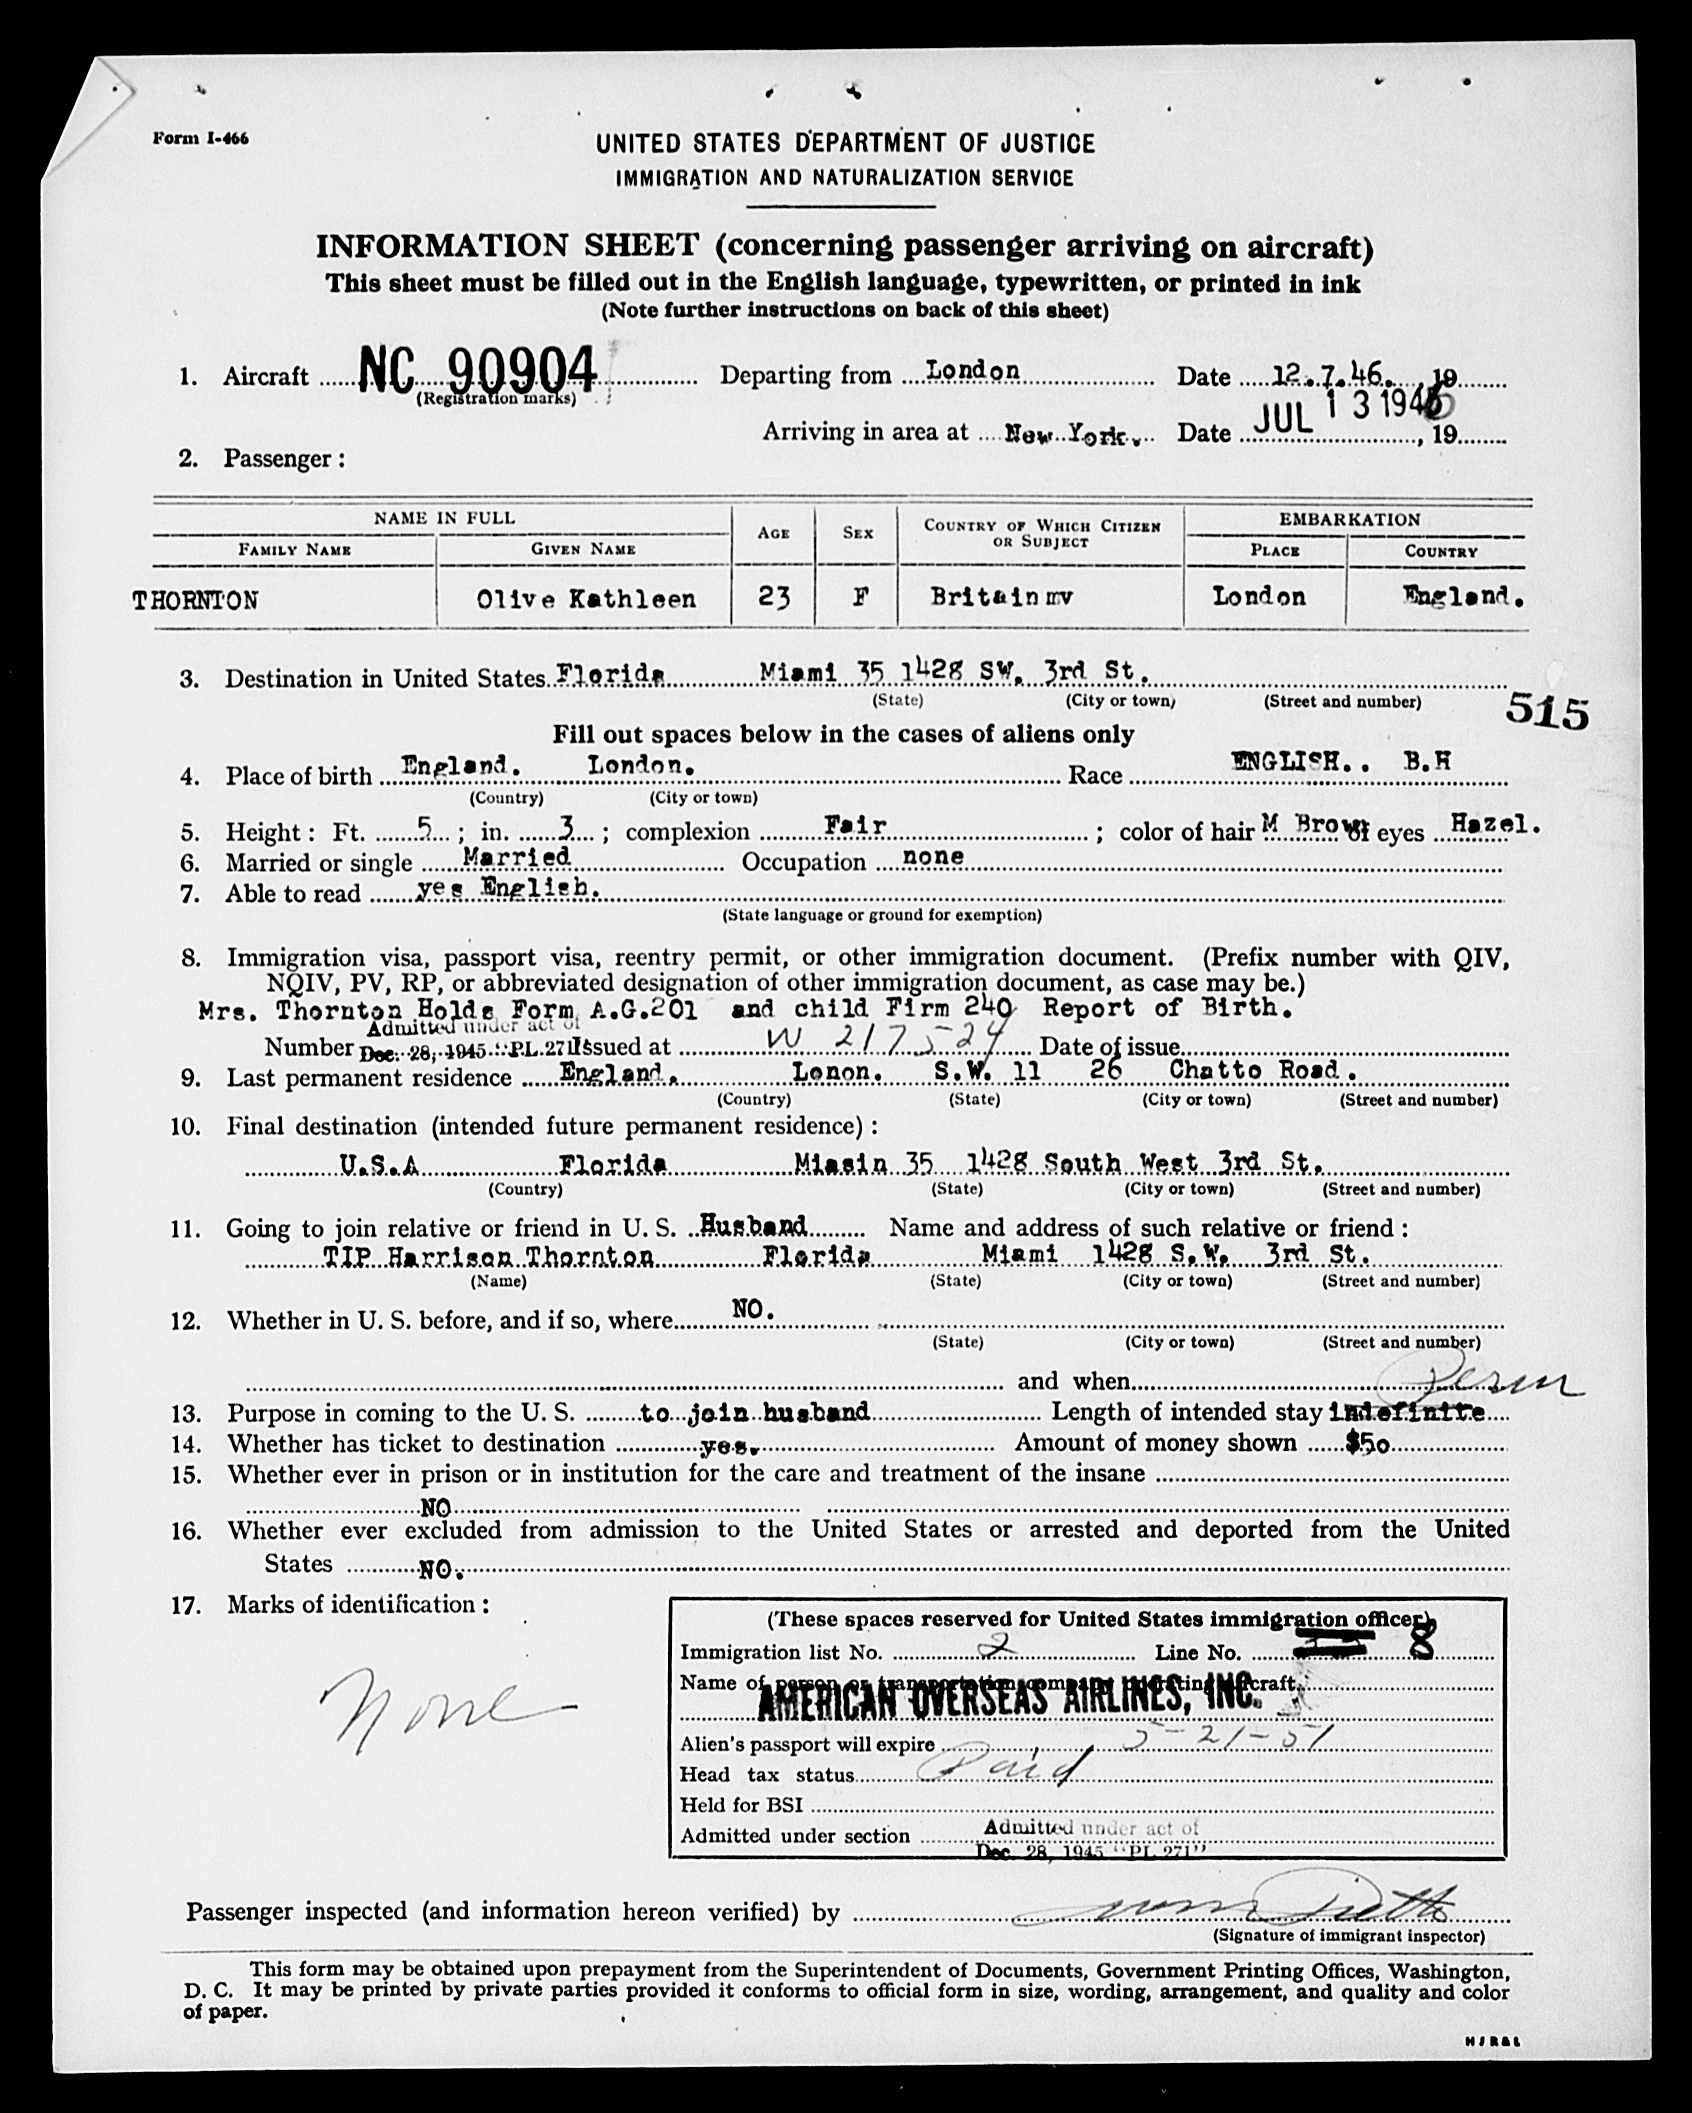 Form I-466
UNITED STATES DEPARTMENT OF JUSTICE
IMMIGRATION AND NATURALIZATION SERVICE
INFORMATION SHEET (concerning passenger arriving on aircraft)
This sheet must be filled out in the English language, typewritten, or printed in ink
(Note further instructions on back of this sheet)
1. Aircraft NC 90904 Departing from London Date 12.7.46. , 19
(Registration marks)
Arriving in area at New York. Date JUL 13 1946 , 19
2. Passenger:
NAME IN FULL AGE SEX COUNTRY OF WHICH CITIZEN OR SUBJECT EMBARKATION
FAMILY NAME GIVEN NAME PLACE COUNTRY
THORNTON Olive Kathleen 23 F Britain mv London England.
3. Destination in United States Florida Miami 35 1428 SW. 3rd St.
(State) (City or town) (Street and number)
515
Fill out spaces below in the cases of aliens only
4. Place of birth England. London. Race ENGLISH.. B.H
(Country) (City or town)
5. Height: Ft. 5 ; in. 3 ; complexion Fair ; color of hair M Brown eyes Hazel.
6. Married or single Married Occupation none
7. Able to read yes English.
(State language or ground for exemption)
8. Immigration visa, passport visa, reentry permit, or other immigration document. (Prefix number with QIV,
NQIV, PV, RP, or abbreviated designation of other immigration document, as case may be.)
Mrs. Thornton Holds Form A.G.201 and child Firm 240 Report of Birth.
Admitted under act of
Number Dec. 28, 1945 "PL 271" Issued at W 217524 Date of issue
9. Last permanent residence England. Lonon. S.W. 11 26 Chatto Road.
(Country) (State) (City or town) (Street and number)
10. Final destination (intended future permanent residence):
U.S.A Florida Miasin 35 1428 South West 3rd St.
(Country) (State) (City or town) (Street and number)
11. Going to join relative or friend in U. S. Husband Name and address of such relative or friend:
TIP Harrison Thornton Florida Miami 1428 S.W. 3rd St.
(Name) (State) (City or town) (Street and number)
12. Whether in U. S. before, and if so, where NO.
(State) (City or town) (Street and number)
and when Perm
13. Purpose in coming to the U. S. to join husband Length of intended stay indefinite
14. Whether has ticket to destination yes. Amount of money shown $50
15. Whether ever in prison or in institution for the care and treatment of the insane
NO
16. Whether ever excluded from admission to the United States or arrested and deported from the United
States NO.
17. Marks of identification:
None
(These spaces reserved for United States immigration officer)
Immigration list No. 2 Line No. 8
Name of person or transportation company operating aircraft
AMERICAN OVERSEAS AIRLINES, INC.
Alien's passport will expire 5-21-51
Head tax status Paid
Held for BSI
Admitted under section Admitted under act of
Dec. 28, 1945 "PL 271"
Passenger inspected (and information hereon verified) by
(Signature of immigrant inspector)
This form may be obtained upon prepayment from the Superintendent of Documents, Government Printing Offices, Washington,
D. C. It may be printed by private parties provided it conforms to official form in size, wording, arrangement, and quality and color
of paper.